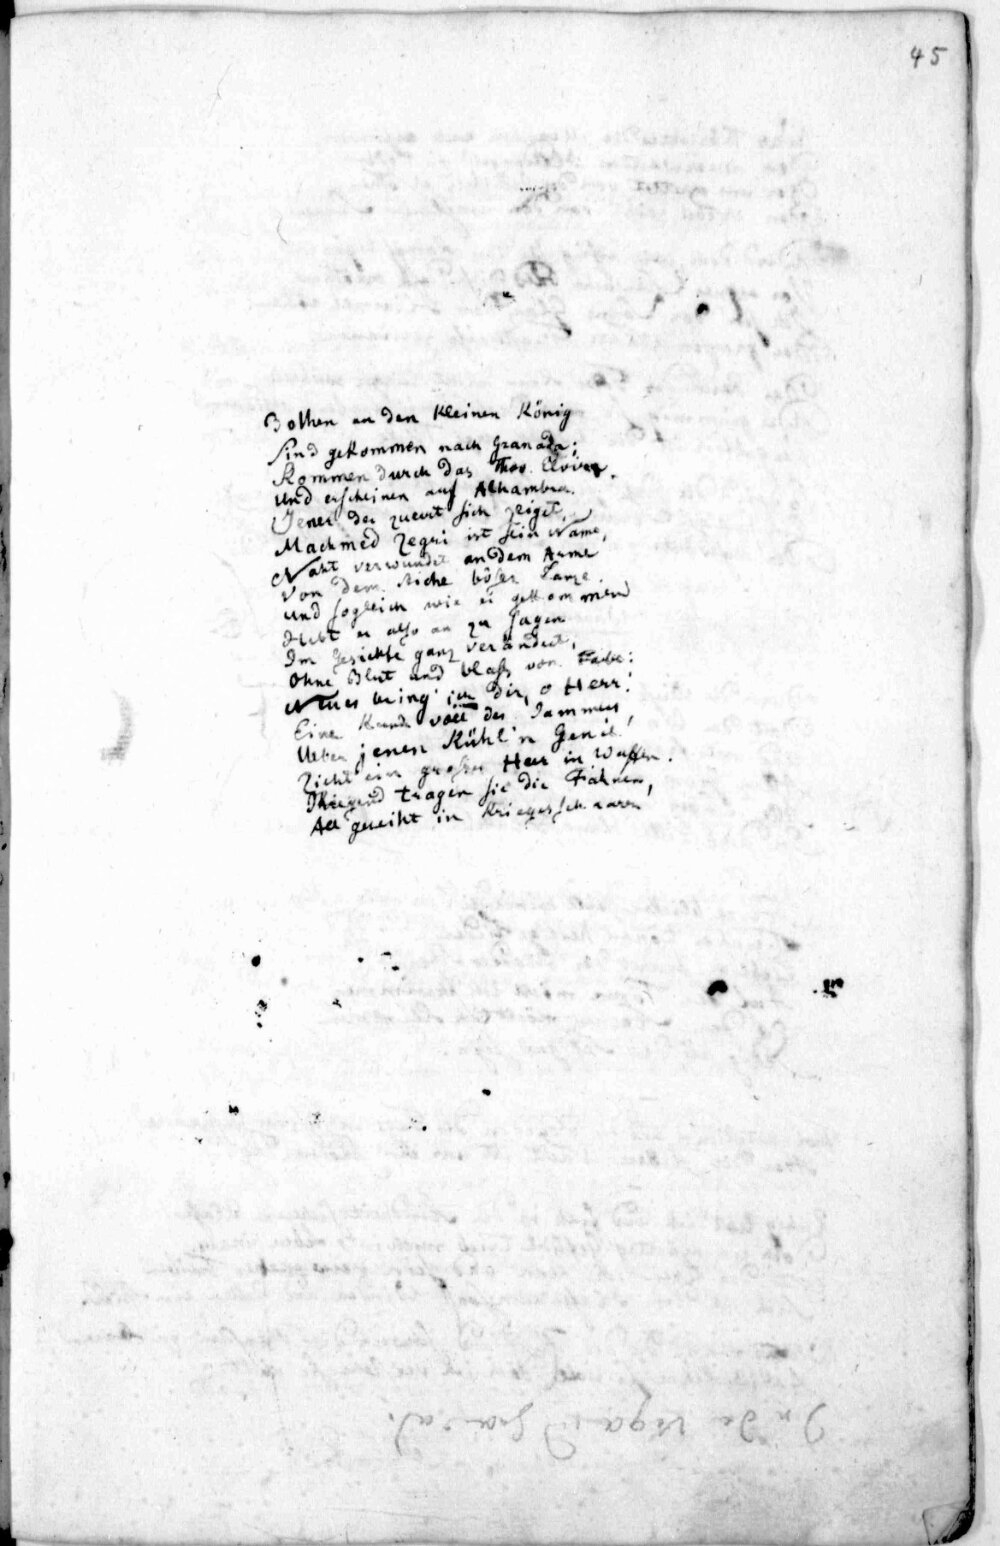 45
Bothen an den kleinen König
Sind gekommen nach Granada;
Kommen durch das Thor Elvira
und erscheinen auf Alhambra.
Jener der zuerst sich zeiget,
Machmed Zegri ist sein Name,
Naht verwundet an dem Arme
Von dem Stiche böser Lanze.
und sogleich wie er gekommen
Hebt er also an zu sagen
Im Gesichte ganz verändert,
Ohne Blut und blaß von Farbe:
Neues bring' ich dir, o Herr!
Eine Kunde voll des Jammers,
Ueber jenen kühl'n Genil
Zieht ein großes Heer in Waffen.
Fliegend tragen sie die Fahnen,
All gereiht in Kriegesschaaren